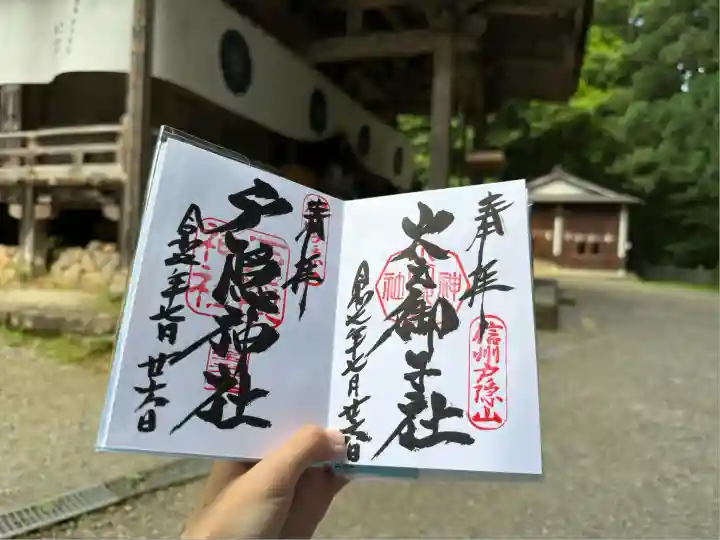 奉拝
火之御子社
信州戸隠山
令和七年七月廿六日
奉拝
戸隠神社
令和七年七月廿六日